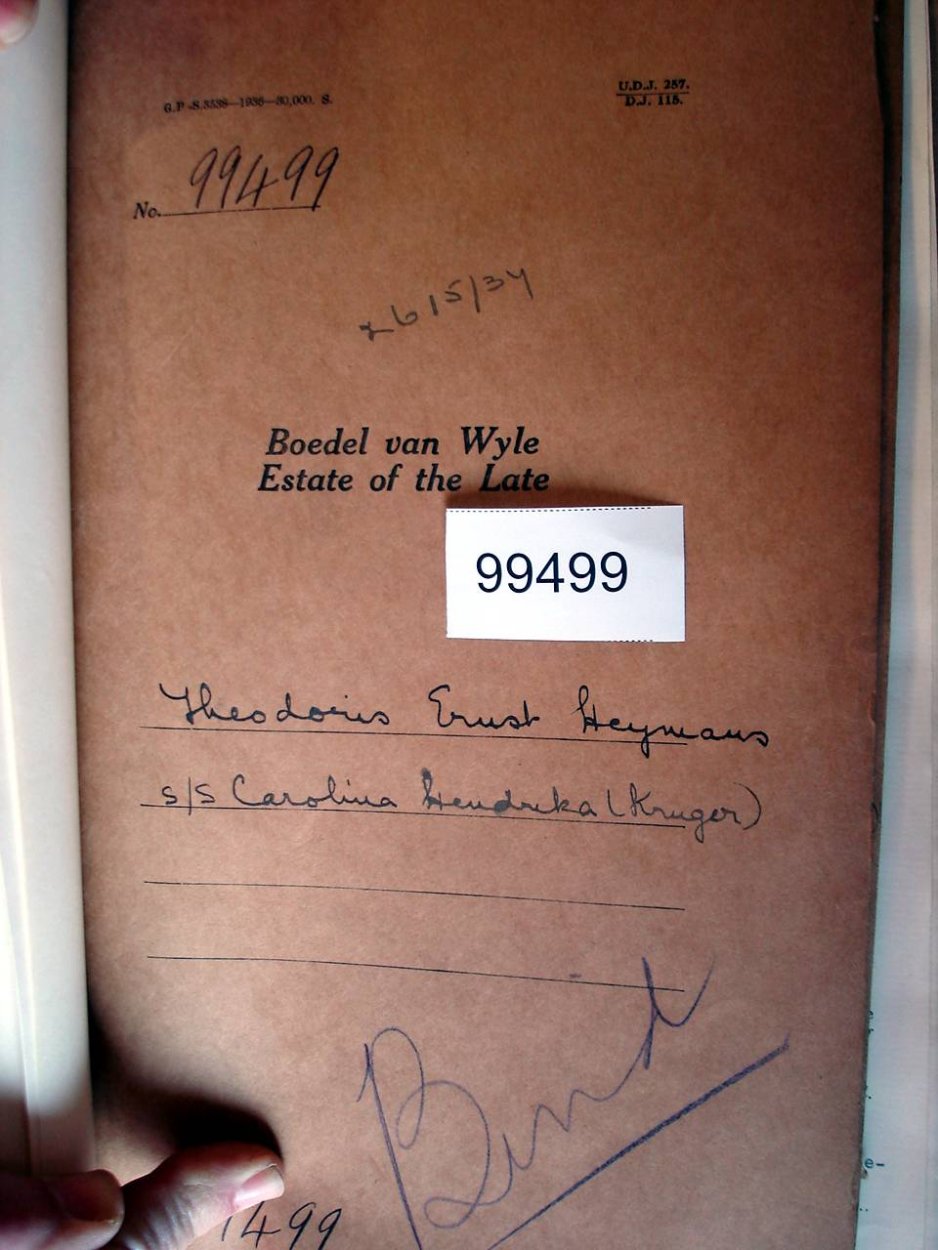 G.P.-S.3538—1936—30,000. S.
U.D.J. 257.
D.J. 115.
No. 99499
26/5/37
Boedel van Wyle
Estate of the Late
99499
Theodorus Ernst Heymans
s/s Carolina Hendrika (Kruger)
Bind
499
e-